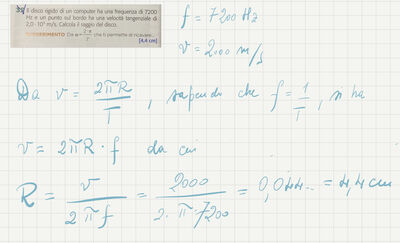 Il disco rigido di un computer ha una frequenza di 7200
Hz e un punto sul bordo ha una velocità tangenziale di
2,0·10³ m/s. Calcola il raggio del disco.
SUGGERIMENTO Da v = 2·π/T che ti permette di ricavare...
[4,4 cm]
f = 7200 Hz
v = 2000 m/s
Da v = 2πR/T, sapendo che f = 1/T, si ha
v = 2πR · f da cui
R = v/2πf = 2000/2·π·7200 = 0,044... = 4,4 cm